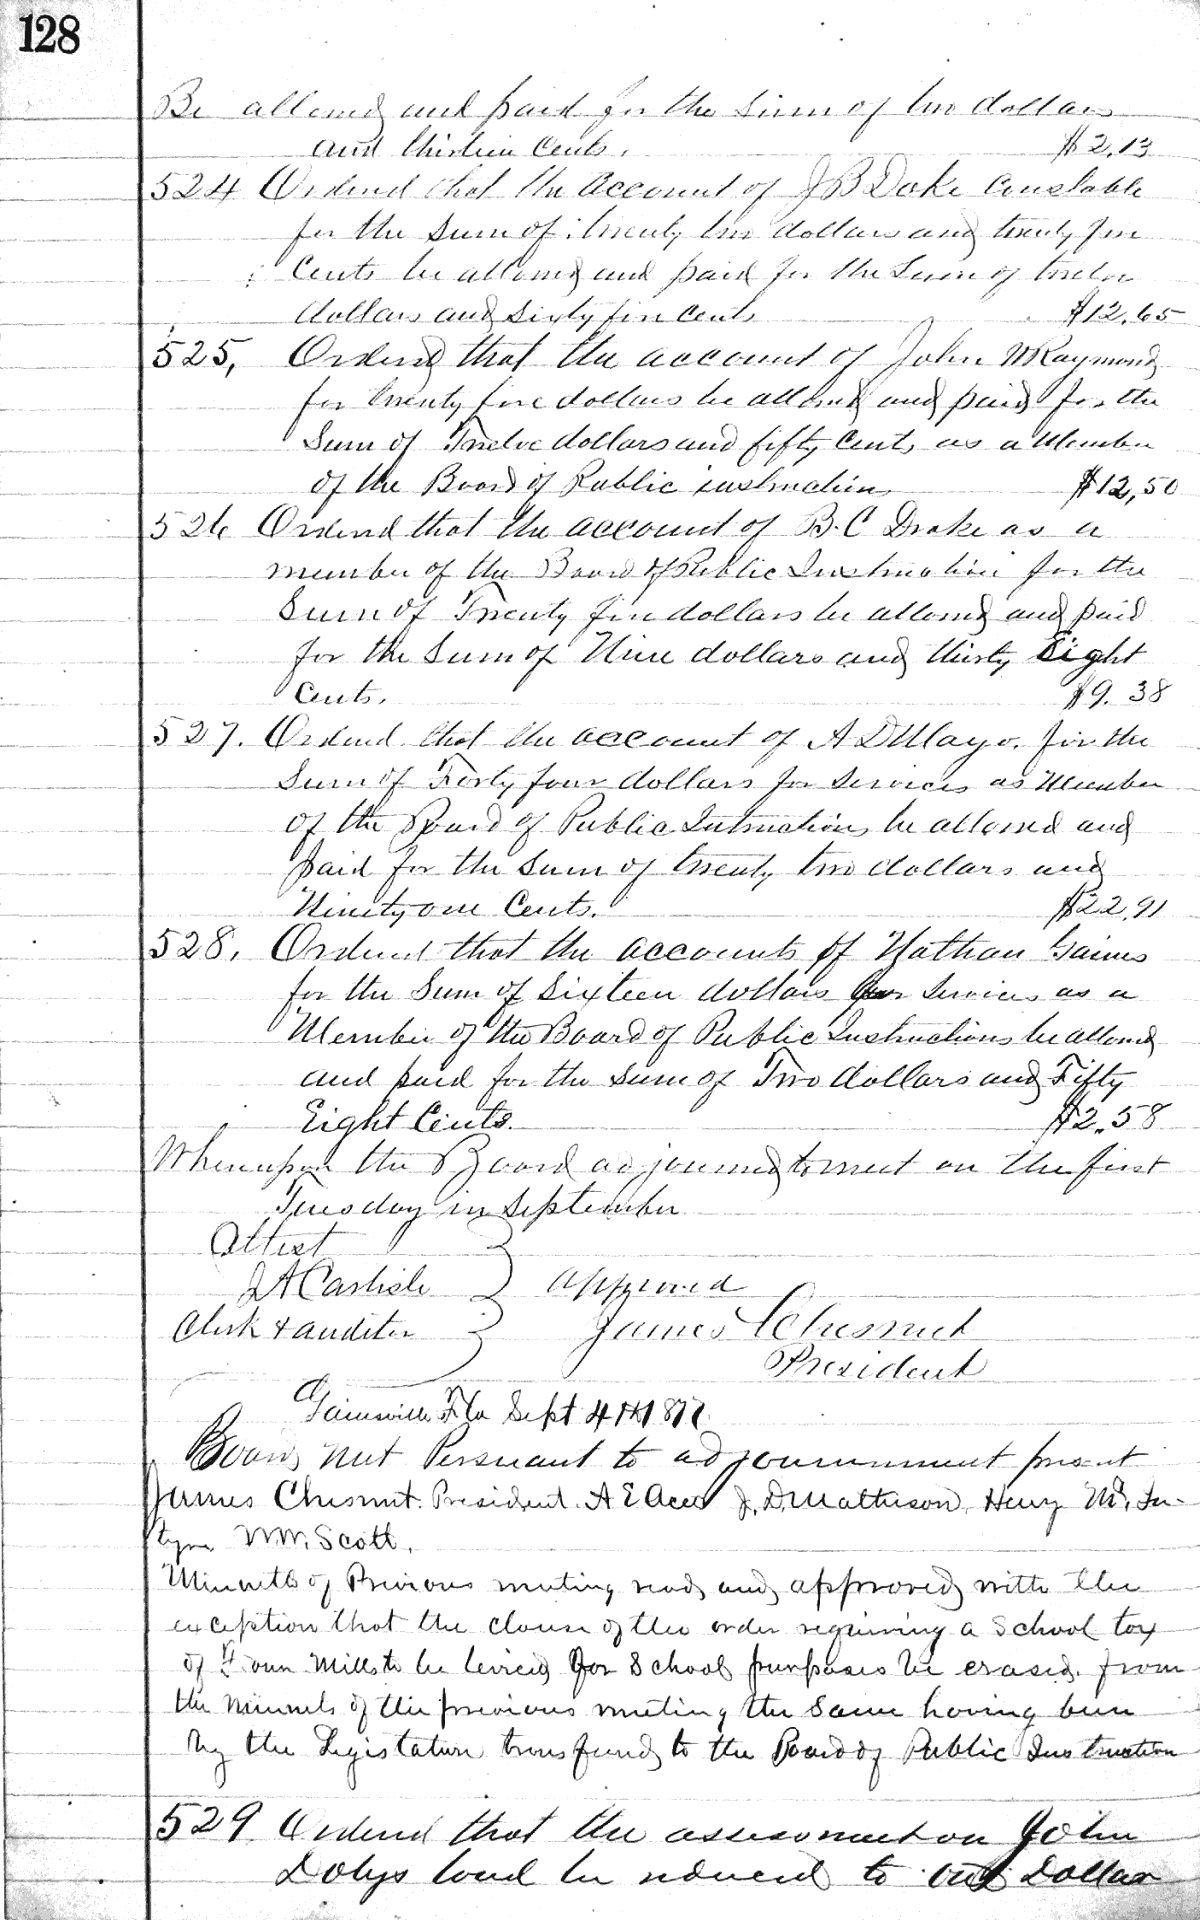 128
Be allowed and paid for the Sum of two dollars
and thirteen Cents. $2.13
524 Ordered that the account of J B Dake Constable
for the Sum of twenty two dollars and twenty five
Cents be allowed and paid for the Sum of twelve
dollars and Sixty five Cents $12.65
525, Ordered that the account of John W Raymond
for twenty five dollars be allowed and paid for the
Sum of Twelve dollars and fifty Cents as a Member
of the Board of Public instruction $12,50
526 Ordered that the account of B. C Drake as a
member of the Board of Public Instruction for the
Sum of Twenty five dollars be allowed and paid
for the Sum of Nine dollars and thirty Eight
Cents. $9.38
527. Ordered that the account of A D Mayo. for the
Sum of Forty four dollars for Services as Member
of the Board of Public Intruction be allowed and
paid for the Sum of twenty two dollars and
Ninety one Cents. $22,91
528. Ordered that the accounts of Nathan Gaines
for the Sum of Sixteen dollars for Services as a
Member of the Board of Public Instructions be allowed
and paid for the Sum of Two dollars and Fifty
Eight Cents. $2.58
Whereupon the Board adjourned to meet on the first
Tuesday in September
Attest
J A Carlisle approved
Clerk & auditor James Chesnut
President
Gainsville Fla Sept 4th 187
Board met Persuant to adjournment present
James Chesnut. President. A E J. D. Matheson, Henry Mc In-
tyre WW. Scott.
Minuetts of Previous meeting read and approved with the
exception that the clause of the order requiring a School tax
of Four Mills to be levied for School purposes be erased from
the minuets of the previous meeting the Same having been
by the Legislature transfered to the Board of Public Instruction
529 Ordered that the assessment on John
Dobys land be reduced to one Dollar